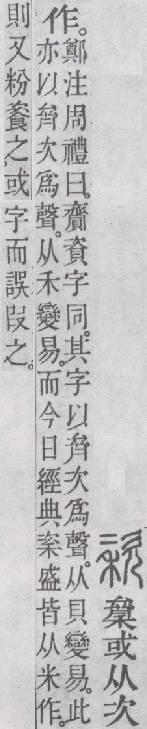 秶𪗉或从次
作。
鄭注周禮曰。齎資字同。其字以齊次爲聲。从貝變易。此
亦以齊次爲聲。从禾變易。而今日經典粢盛皆从米作。
則又粉餈之或字而誤叚之。